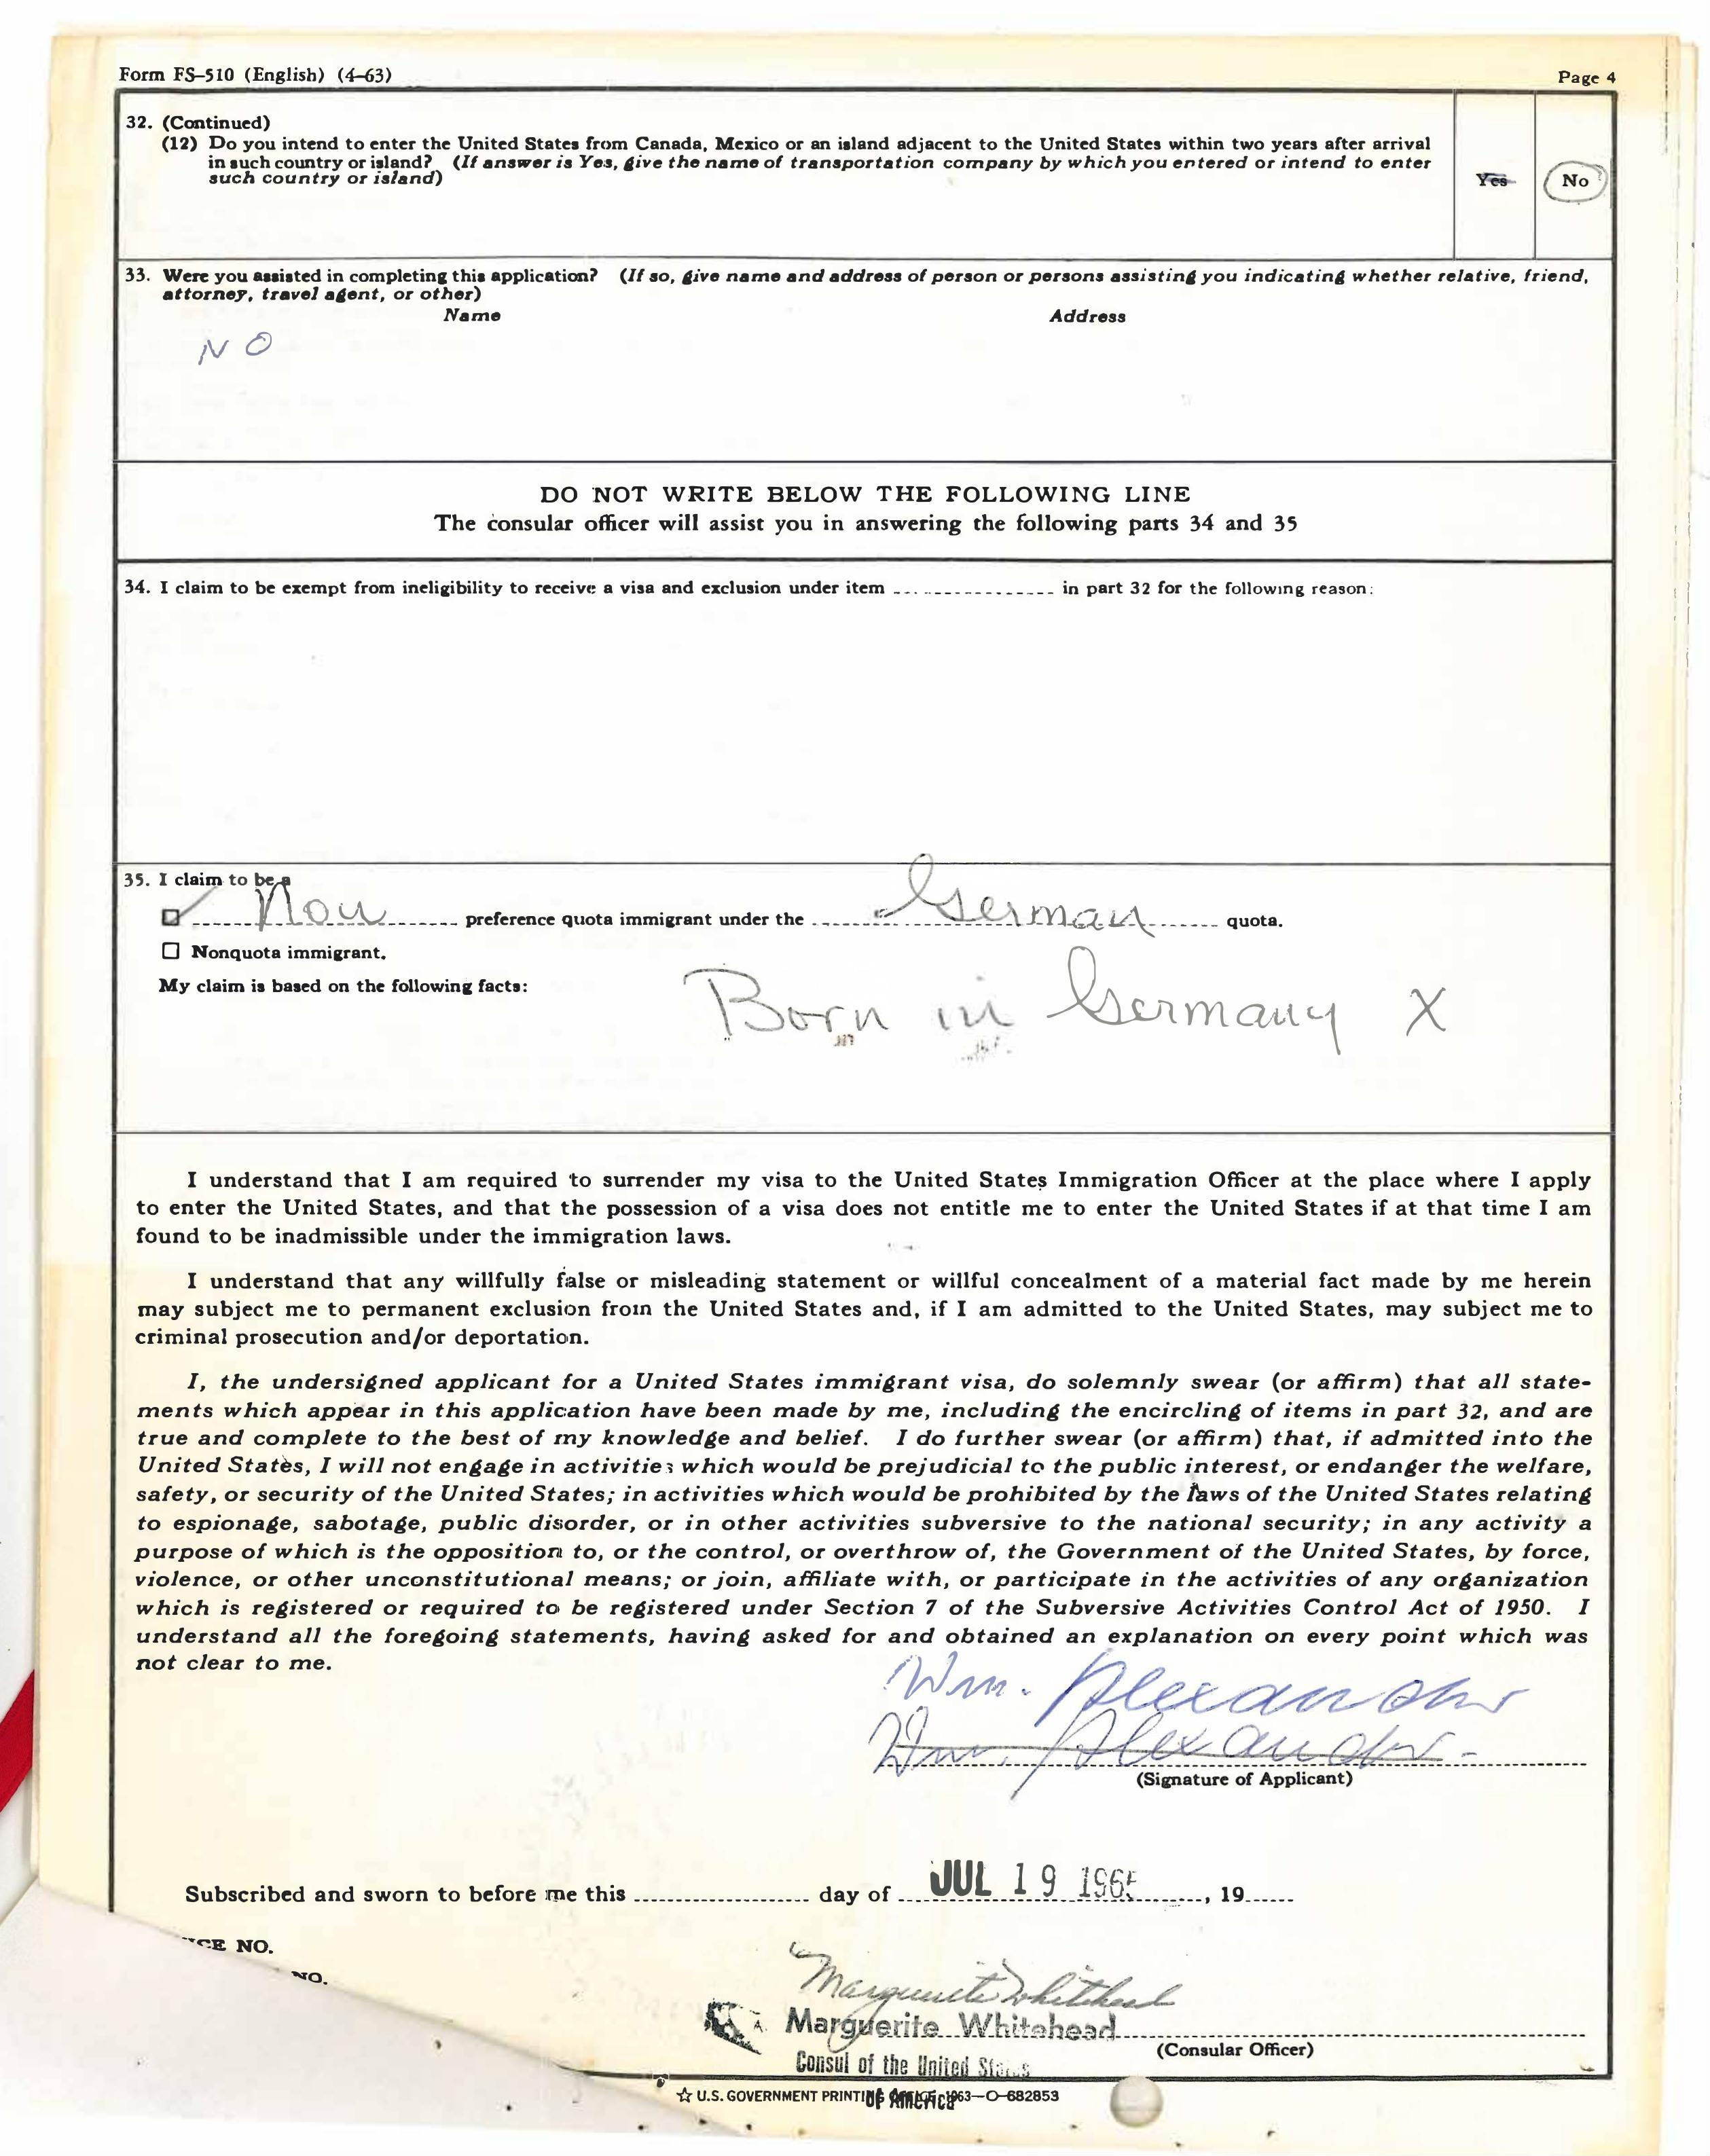 Form FS-510 (English) (4-63)
Page 4
32. (Continued)
(12) Do you intend to enter the United States from Canada, Mexico or an island adjacent to the United States within two years after arrival
in such country or island? (If answer is Yes, give the name of transportation company by which you entered or intend to enter
such country or island)
Yes No
33. Were you assisted in completing this application? (If so, give name and address of person or persons assisting you indicating whether relative, friend,
attorney, travel agent, or other)
Name Address
NO
DO NOT WRITE BELOW THE FOLLOWING LINE
The consular officer will assist you in answering the following parts 34 and 35
34. I claim to be exempt from ineligibility to receive a visa and exclusion under item ................ in part 32 for the following reason:
35. I claim to be a
Non preference quota immigrant under the German quota.
Nonquota immigrant.
My claim is based on the following facts:
Born in Germany X
I understand that I am required to surrender my visa to the United States Immigration Officer at the place where I apply
to enter the United States, and that the possession of a visa does not entitle me to enter the United States if at that time I am
found to be inadmissible under the immigration laws.
I understand that any willfully false or misleading statement or willful concealment of a material fact made by me herein
may subject me to permanent exclusion from the United States and, if I am admitted to the United States, may subject me to
criminal prosecution and/or deportation.
I, the undersigned applicant for a United States immigrant visa, do solemnly swear (or affirm) that all state-
ments which appear in this application have been made by me, including the encircling of items in part 32, and are
true and complete to the best of my knowledge and belief. I do further swear (or affirm) that, if admitted into the
United States, I will not engage in activities which would be prejudicial to the public interest, or endanger the welfare,
safety, or security of the United States; in activities which would be prohibited by the laws of the United States relating
to espionage, sabotage, public disorder, or in other activities subversive to the national security; in any activity a
purpose of which is the opposition to, or the control, or overthrow of, the Government of the United States, by force,
violence, or other unconstitutional means; or join, affiliate with, or participate in the activities of any organization
which is registered or required to be registered under Section 7 of the Subversive Activities Control Act of 1950. I
understand all the foregoing statements, having asked for and obtained an explanation on every point which was
not clear to me.
Wm. Alexander
Wm. Alexander
(Signature of Applicant)
Subscribed and sworn to before me this .................... day of JUL 19 1965, 19......
NO.
NO.
Marguerite Whitehead
Marguerite Whitehead
(Consular Officer)
Consul of the United States
of America
☆ U.S. GOVERNMENT PRINTING OFFICE: 1963—O-682853